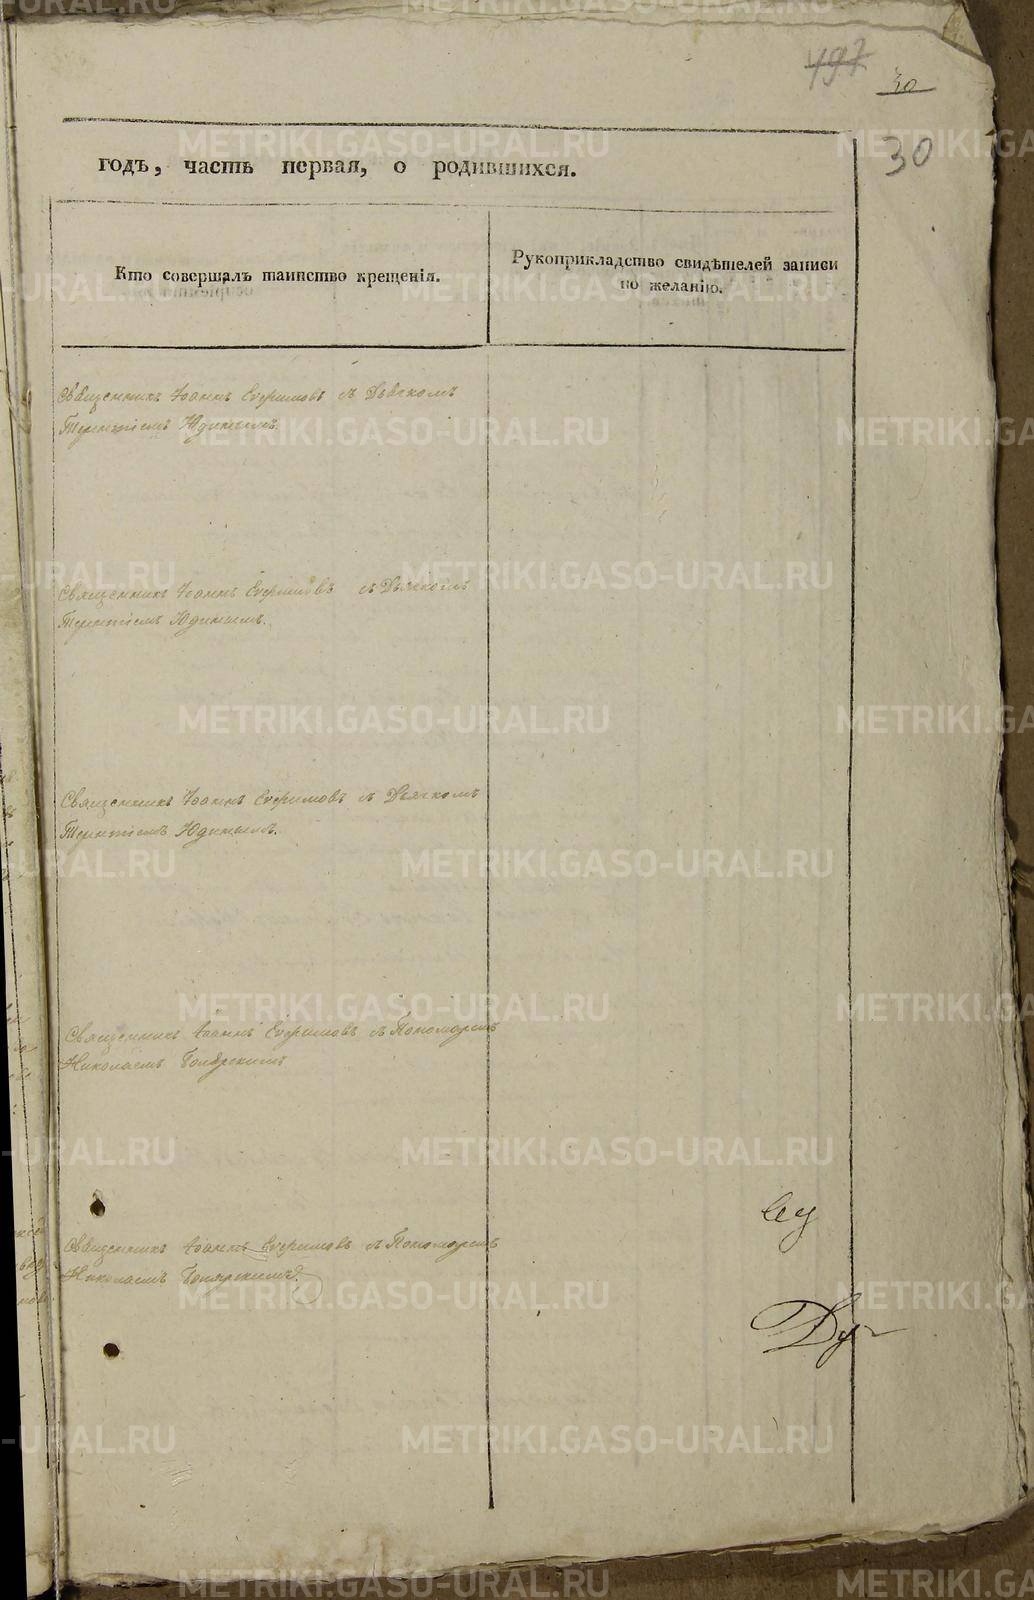 497
30
30
годъ, часть первая, о родившихся.
Кто совершалъ таинство крещенія.
Рукоприкладство свидѣтелей записи
по желанію.
Священникъ Іоаннъ Ефримовъ съ Дьячкомъ
Терентіемъ Юдинымъ.
Священникъ Іоаннъ Ефримовъ съ Дьячкомъ
Терентіемъ Юдинымъ.
Священникъ Іоаннъ Ефримовъ съ Дьячкомъ
Терентіемъ Юдинымъ.
Священникъ Іоаннъ Ефримовъ съ Пономаремъ
Николаемъ
Священникъ Іоаннъ Ефримовъ съ Пономаремъ
Николаемъ
METRIKI.GASO-URAL.RU